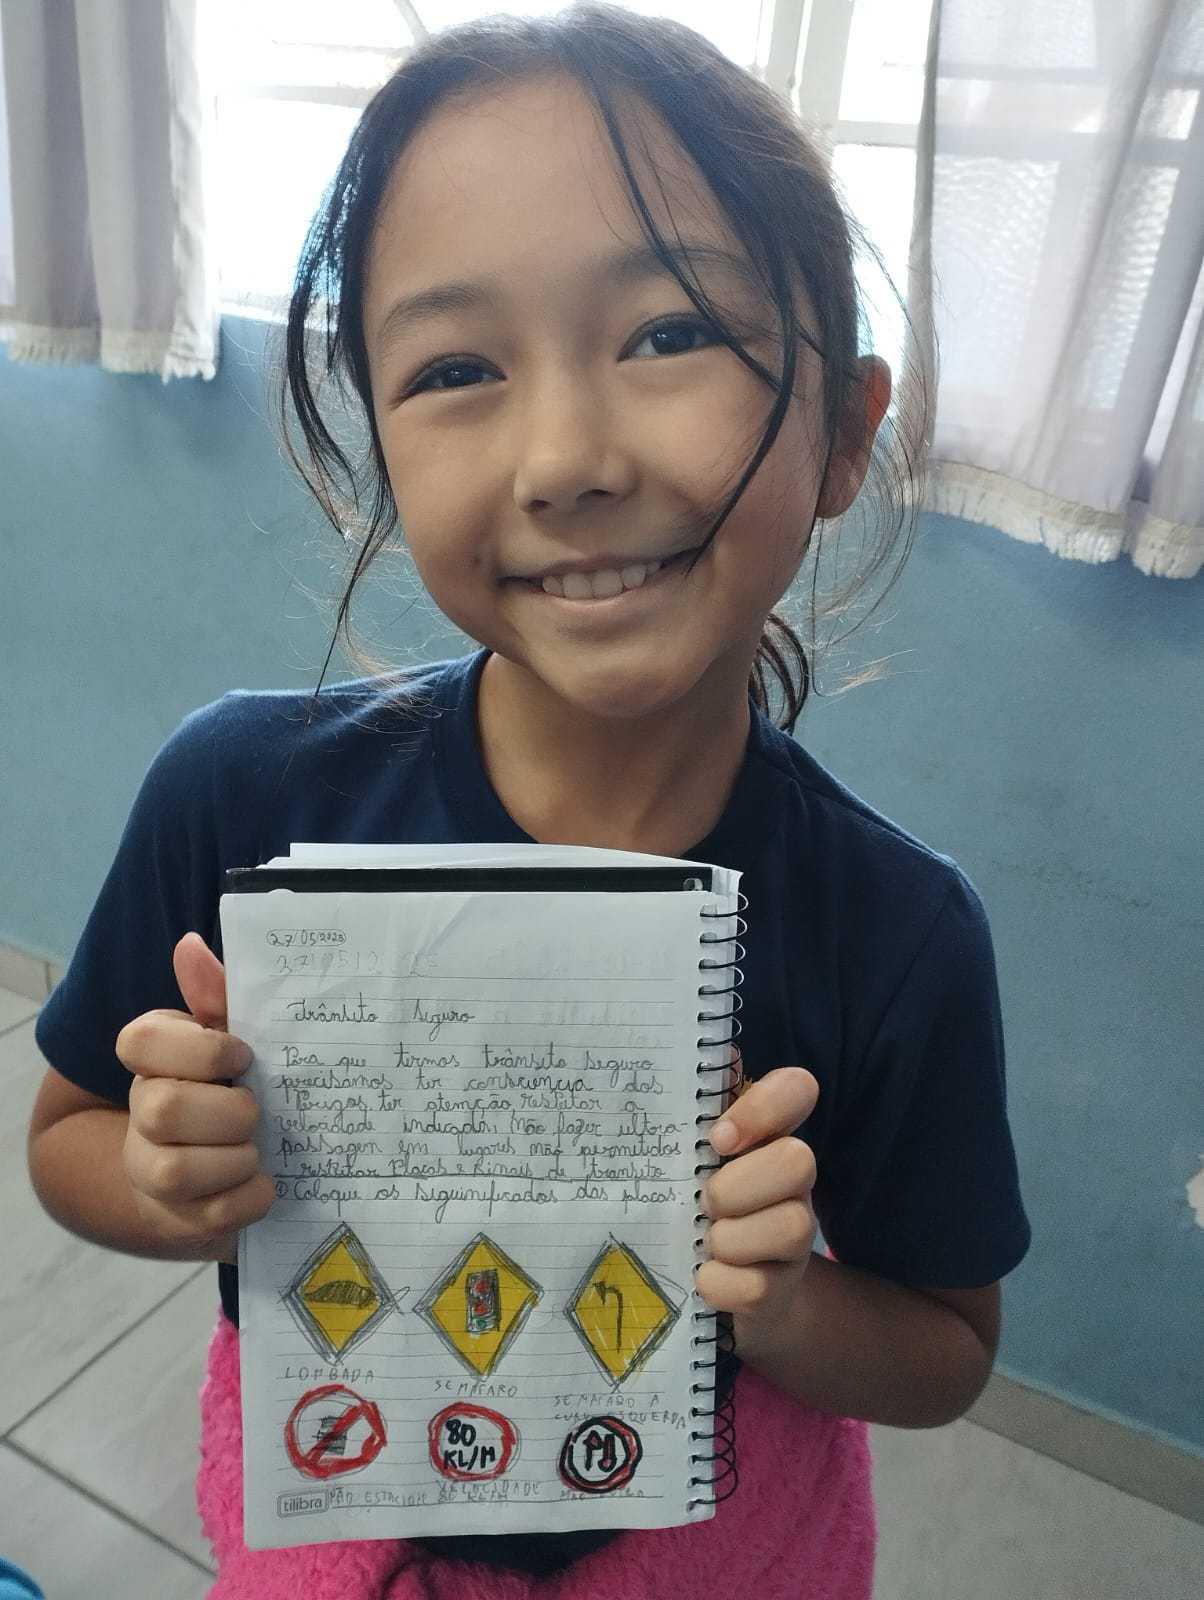 27/05/2025
Trânsito Seguro
Para que termos trânsito seguro
precisamos ter consciencia dos
Perigos, ter atenção, resfeitar a
velocidade indicada, não fazer ultra-
passagem em lugares não permitidos
resfeitar Placas e Sinais de transito
① Coloque os siguinificados das placas:
LOMBADA
SEMAFARO
SEMAFARO A
ESQUERDA
80
KL/H
NÃO
VELOCIDADE
80
tilibra